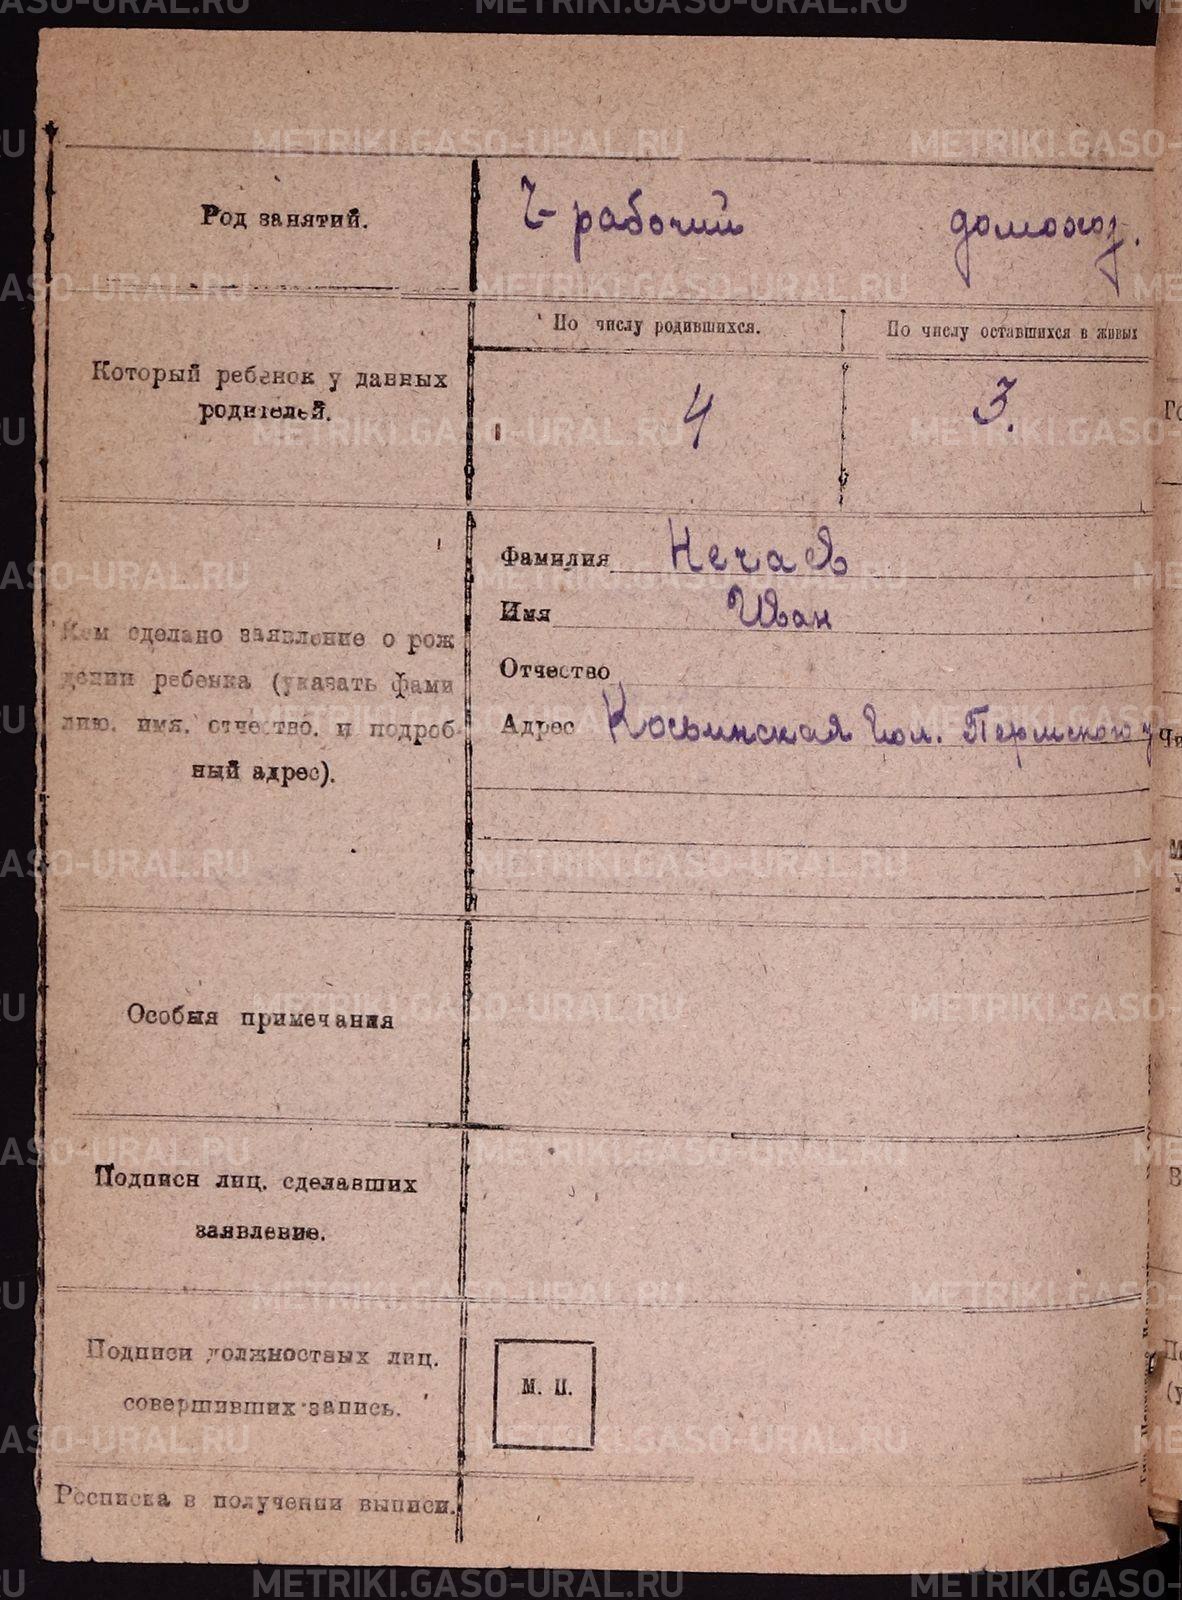 METRIKI.GASO-URAL.RU
Род занятий.
Ч-рабочий
домохоз.
Который ребенок у данных
родителей.
По числу родившихся.
По числу оставшихся в живых
4
3.
Кем сделано заявление о рож
дении ребенка (указать фами
лию. имя. отчество. и подроб
ный адрес).
Фамилия Нечаев
Имя Иван
Отчество
Адрес Косьинская Вол. Пермского у
Особыя примечания
Подписи лиц. сделавших
заявление.
Подписи должностных лиц.
совершивших запись.
М. П.
Росписка в получении выписи.